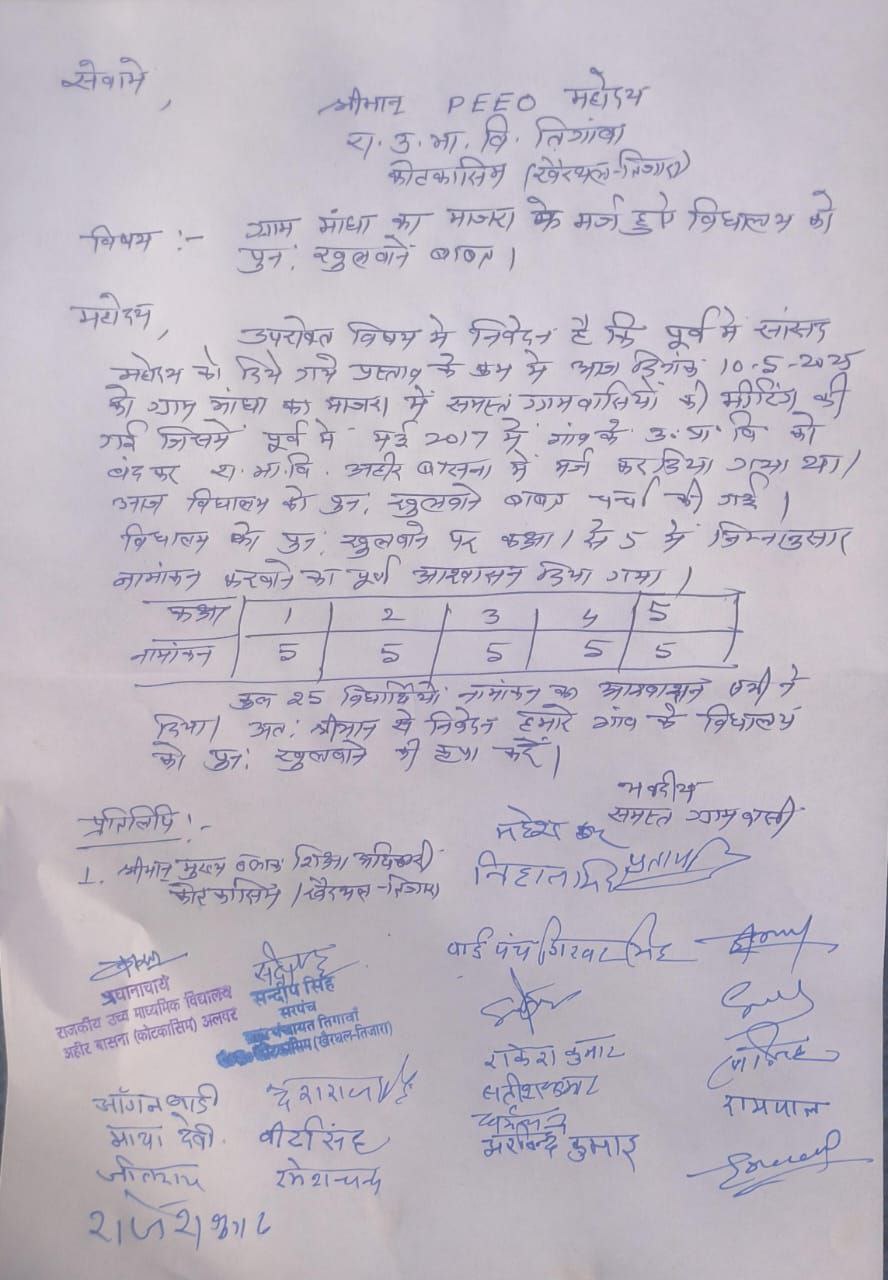 सेवामे,
श्रीमान् PEEO महोदय
रा. उ. मा. वि. तिगांवा
कोटकासिम (खैरथल-तिजारा)
विषय :- ग्राम मांधा का माजरा के मर्ज हुऐ विधालय को
पुन: खुलवाने बाबत।
महोदय,
उपरोक्त विषय मे निवेदन है कि पूर्व मे सांसद
महोदय को दिये गये प्रस्ताव के क्रम मे आज दिनांक 10-5-2025
को ग्राम मांधा का माजरा में समस्त ग्रामवासियों की मीटिंग की
गई जिसमें पूर्व में मई 2017 में गांव के उ. प्रा. वि को
बंद कर रा. मा. वि. अहीर बासना में मर्ज कर दिया गया था।
आज विधालय को पुन: खुलवाने बाबत चर्चा की गई।
विधालय को पुन: खुलवाने पर कक्षा 1 से 5 में निम्नानुसार
नामांकन करवाने का पूर्ण आश्वासन दिया गया।
कक्षा 1 2 3 4 5
नामांकन 5 5 5 5 5
कुल 25 विधार्थियों नामांकन का आश्वासन सभी ने
दिया। अत: श्रीमान से निवेदन हमारे गांव के विधालय
को पुन: खुलवाने की कृपा करें।
भवदीय
समस्त ग्रामवासी
प्रतिलिपि :-
1. श्रीमान् मुख्य ब्लाक शिक्षा अधिकारी
कोटकासिम (खैरथल-तिजारा)
महेश
निहाल सिंह प्रताप
वार्ड पंच गिरवर सिंह
प्रधानाचार्य
राजकीय उच्च माध्यमिक विद्यालय
अहीर बासना (कोटकासिम) अलवर
सन्दीप सिंह
सरपंच
ग्राम पंचायत तिगावाँ
कोटकासिम (खैरथल-तिजारा)
राकेश कुमार
आँगनबाडी देशराज
माया देवी बीरसिंह
रमेशचन्द
कुमार
रामपाल
राजेश कुमार